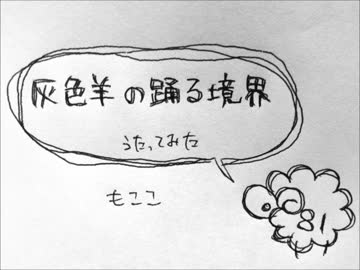 灰色羊の踊る境界
うたってみた
もここ